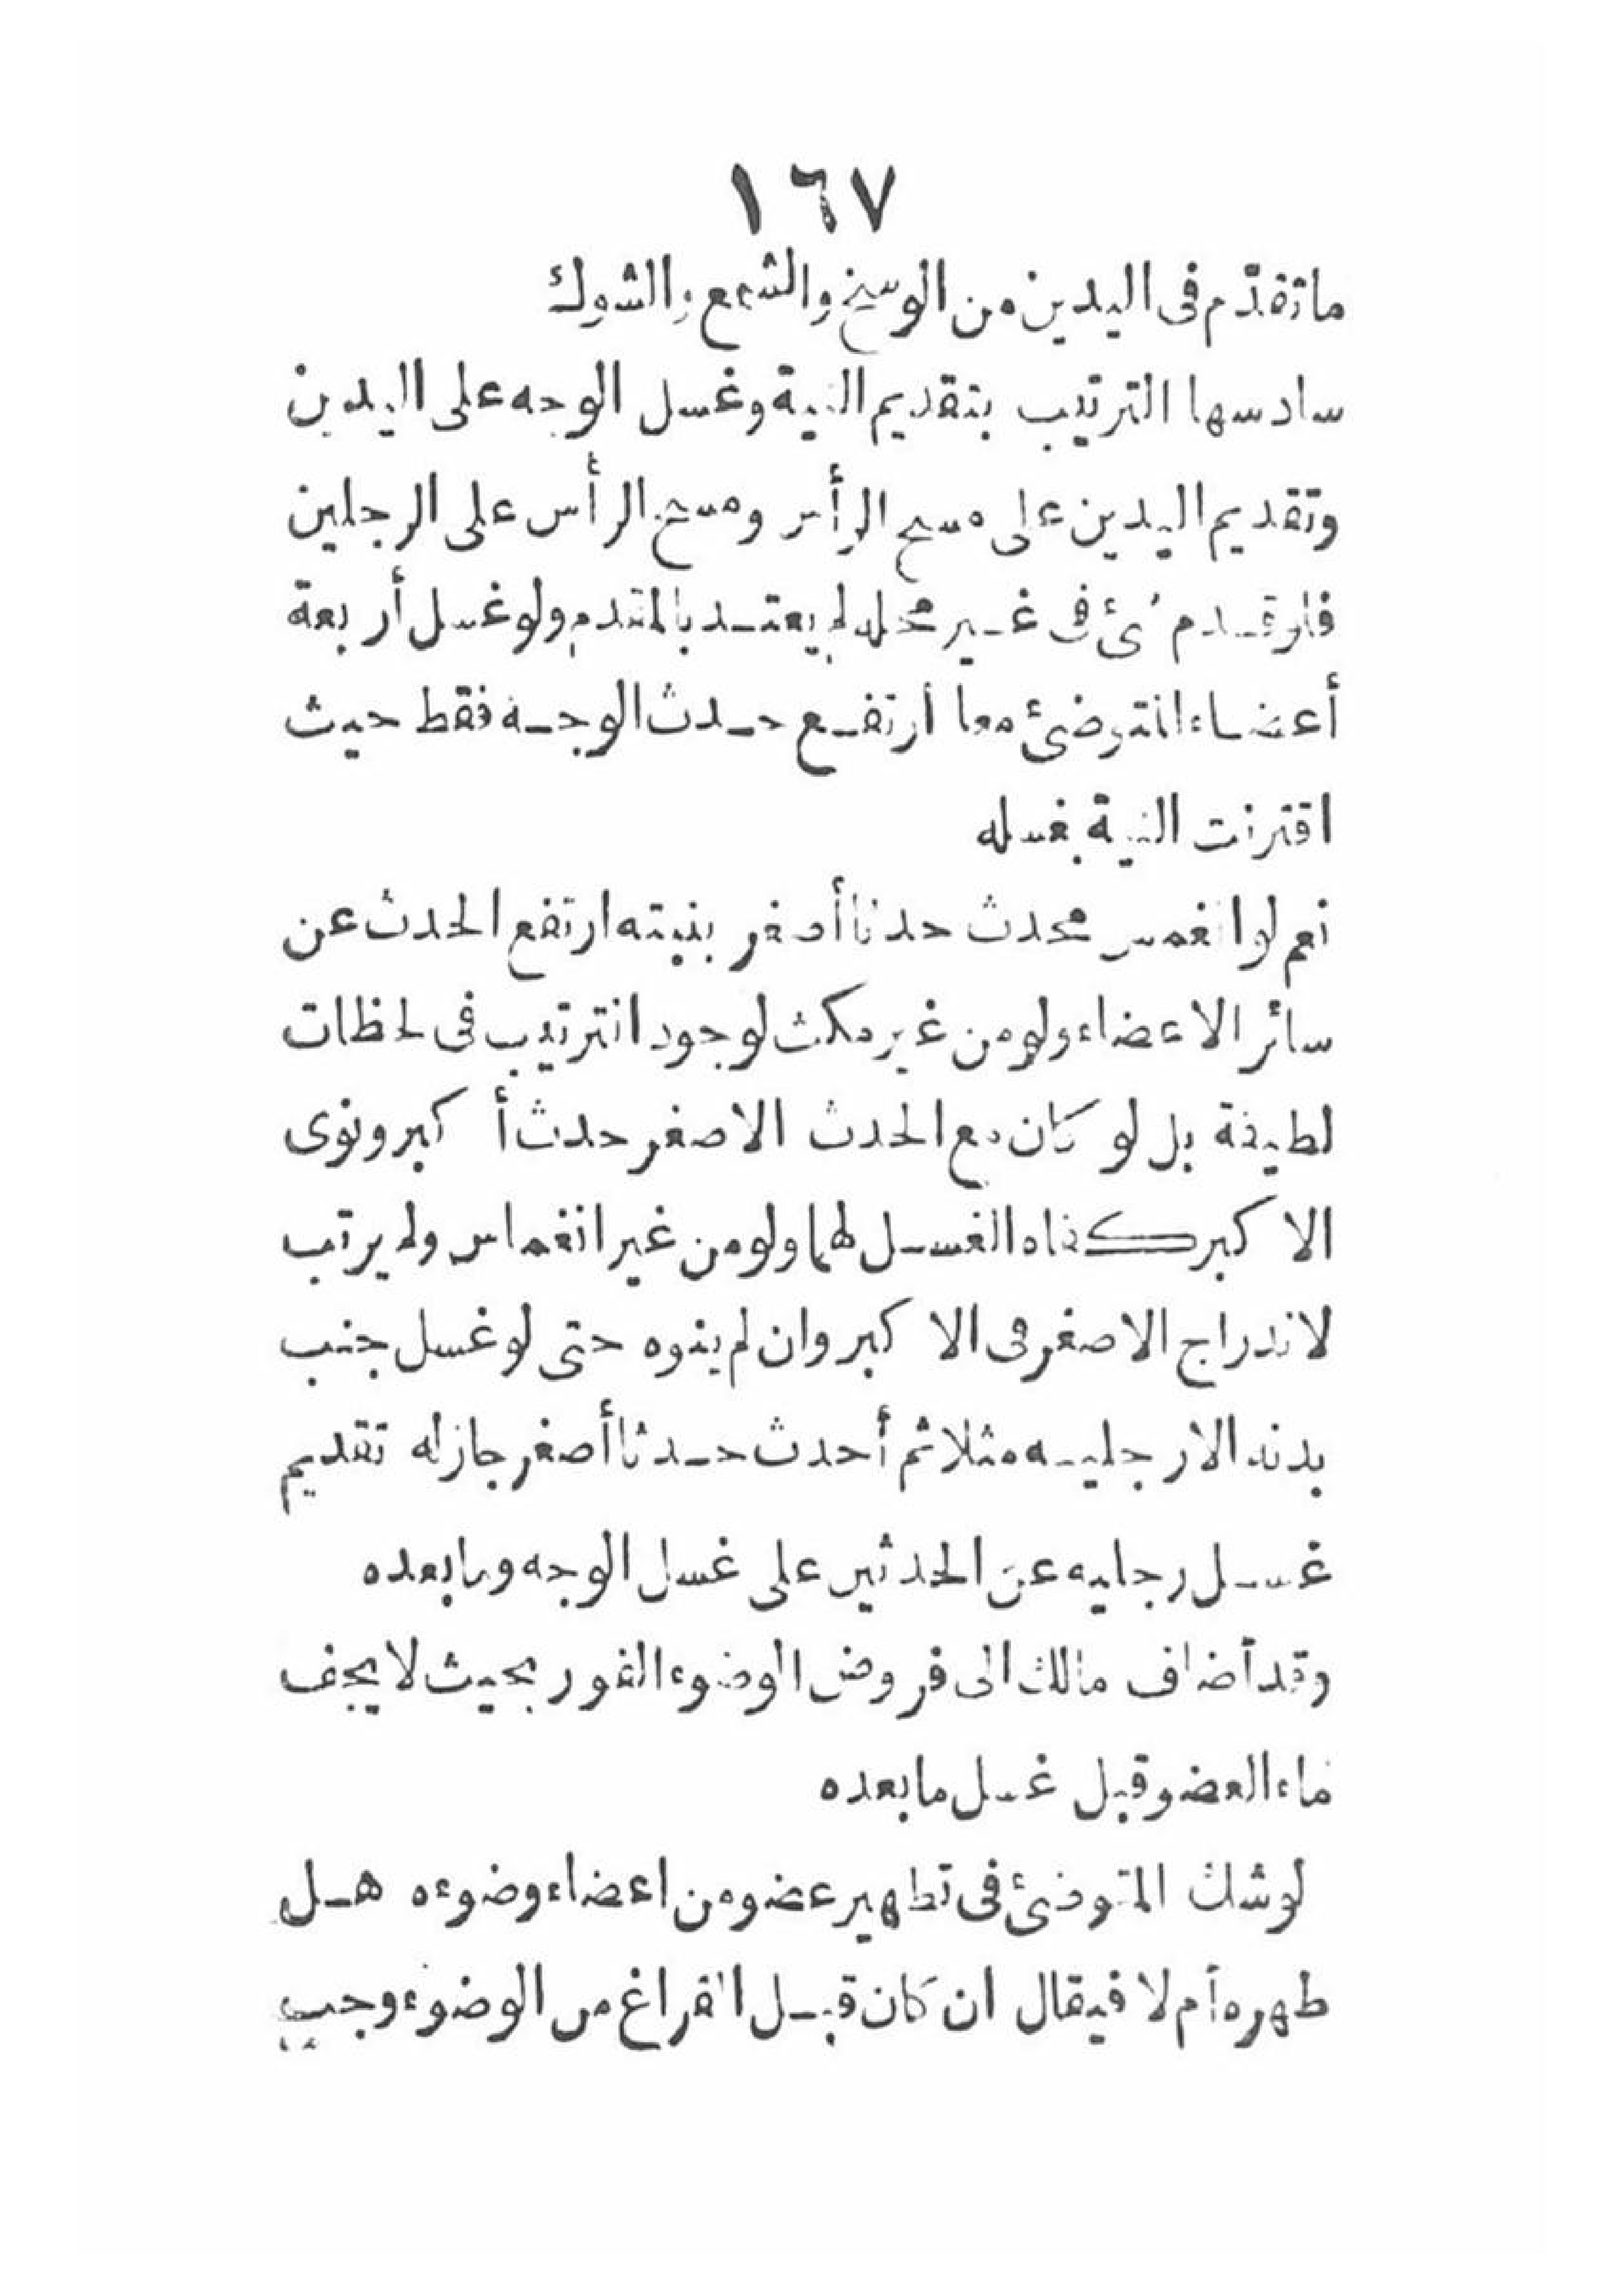 ١٦٧
ما تقدّم فى اليدين من الوسخ والشمع والشوك
سادسها الترتيب بتقديم النية وغسل الوجه على اليدين
وتقديم اليدين على مسح الرأس ومسح الرأس على الرجلين
فلو قدم شئ فى غير محله لم يعتد بالمتقدم ولو غسل أربعة
أعضاء المتوضئ معا ارتفع حدث الوجه فقط حيث
اقترنت النية بغسله
نعم لو انغمس محدث حدثا أصغر بنيته ارتفع الحدث عن
سائر الاعضاء ولو من غير مكث لوجود الترتيب فى لحظات
لطيفة بل لو كان مع الحدث الاصغر حدث أكبر ونوى
الاكبر كفاه الغسل لهما ولو من غير انغماس ولم يرتب
لاندراج الاصغر فى الاكبر وان لم ينوه حتى لو غسل جنب
بدنه الا رجليه مثلا ثم أحدث حدثا أصغر جاز له تقديم
غسل رجليه عن الحدثين على غسل الوجه وما بعده
وقد أضاف مالك الى فروض الوضوء الفور بحيث لا يجف
ماء العضو قبل غسل ما بعده
لو شك المتوضئ فى تطهير عضو من اعضاء وضوءه هل
طهره أم لا فيقال ان كان قبل الفراغ من الوضوء وجب